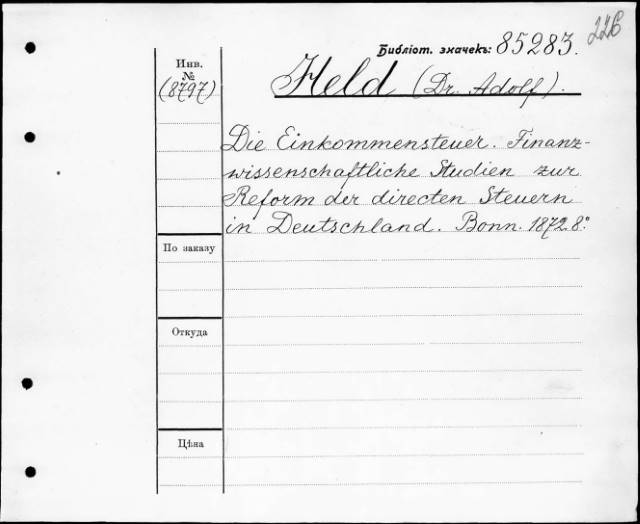 226
Библіот. значекъ: 85283.
Инв.
№
(8797)
Held (Dr. Adolf).
Die Einkommensteuer. Finanz-
wissenschaftliche Studien zur
Reform der directen Steuern
in Deutschland. Bonn. 1872. 8.º
По заказу
Откуда
Цѣна